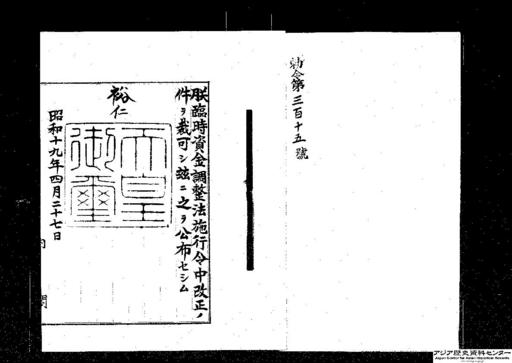 勅令第三百十五號
朕臨時資金調整法施行令中改正ノ
件ヲ裁可シ玆ニ之ヲ公布セシム
裕仁
天皇
御璽
昭和十九年四月二十七日
内閣
アジア歴史資料センター
Japan Center for Asian Historical Records